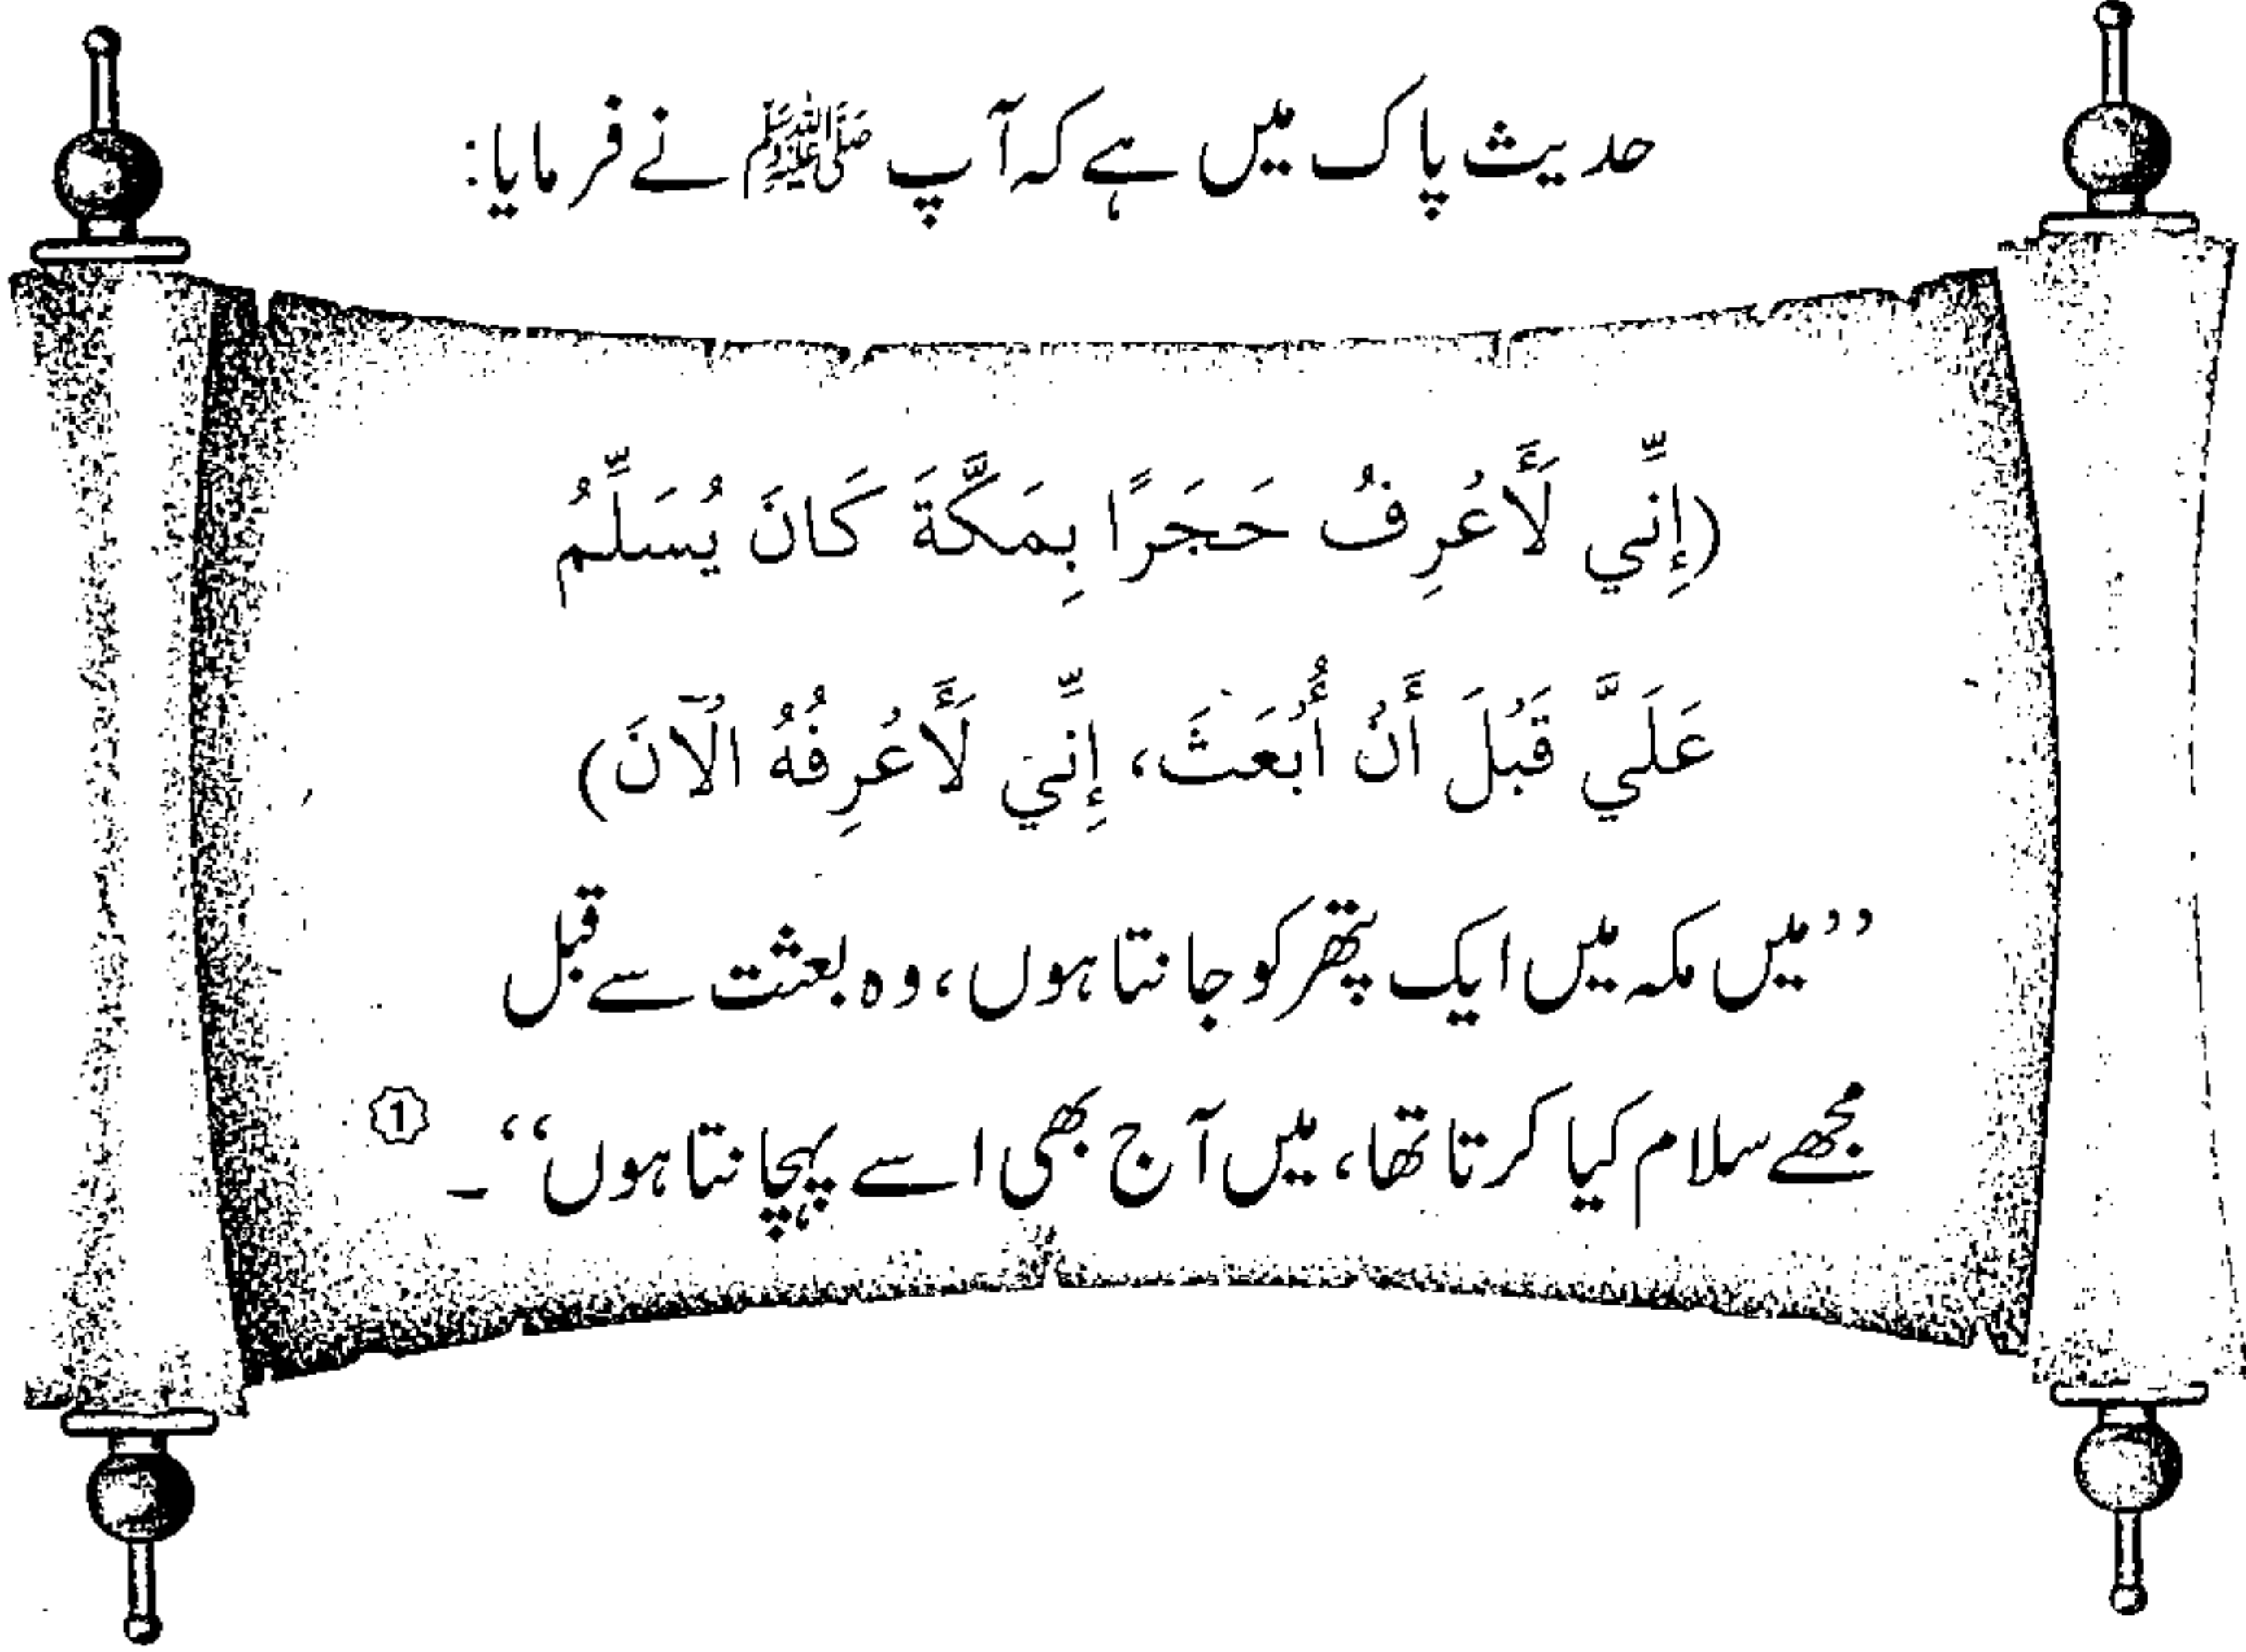 حدیث پاک میں ہے کہ آپ ﷺ نے فرمایا:
(إِنِّي لَأَعْرِفُ حَجَرًا بِمَكَّةَ كَانَ يُسَلِّمُ
عَلَيَّ قَبْلَ أَنْ أُبْعَثَ، إِنِّي لَأَعْرِفُهُ الْآنَ)
’’میں مکہ میں ایک پتھر کو جانتا ہوں، وہ بعثت سے قبل
مجھے سلام کیا کرتا تھا، میں آج بھی اسے پہچانتا ہوں‘‘۔ ①